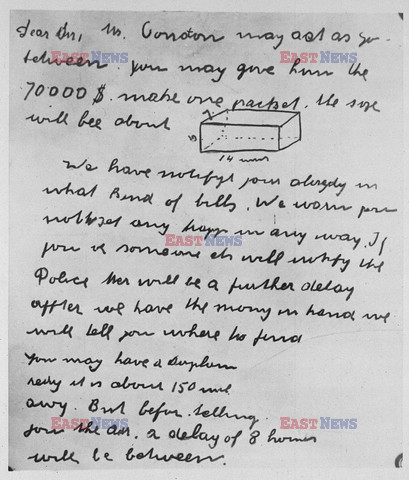 Dear Sir, Mr. Condon may act as go-
between. You may give him the
70000 $. make one packet. the size
will bee about
14 
We have notifyt you already in
what kind of bills. We warn you
not to set any trapp in any way. If
you or someone els will notify the
Police ther will be a further delay
affter we have the mony in hand we
will tell you where to find
You may have a airplane
redy it is about 150 mil
awy. But befor telling
you the adr. a delay of 8 houers
will be between.
EASTNEWS
EASTNEWS
EASTNEWS
EASTNEWS
EASTNEWS